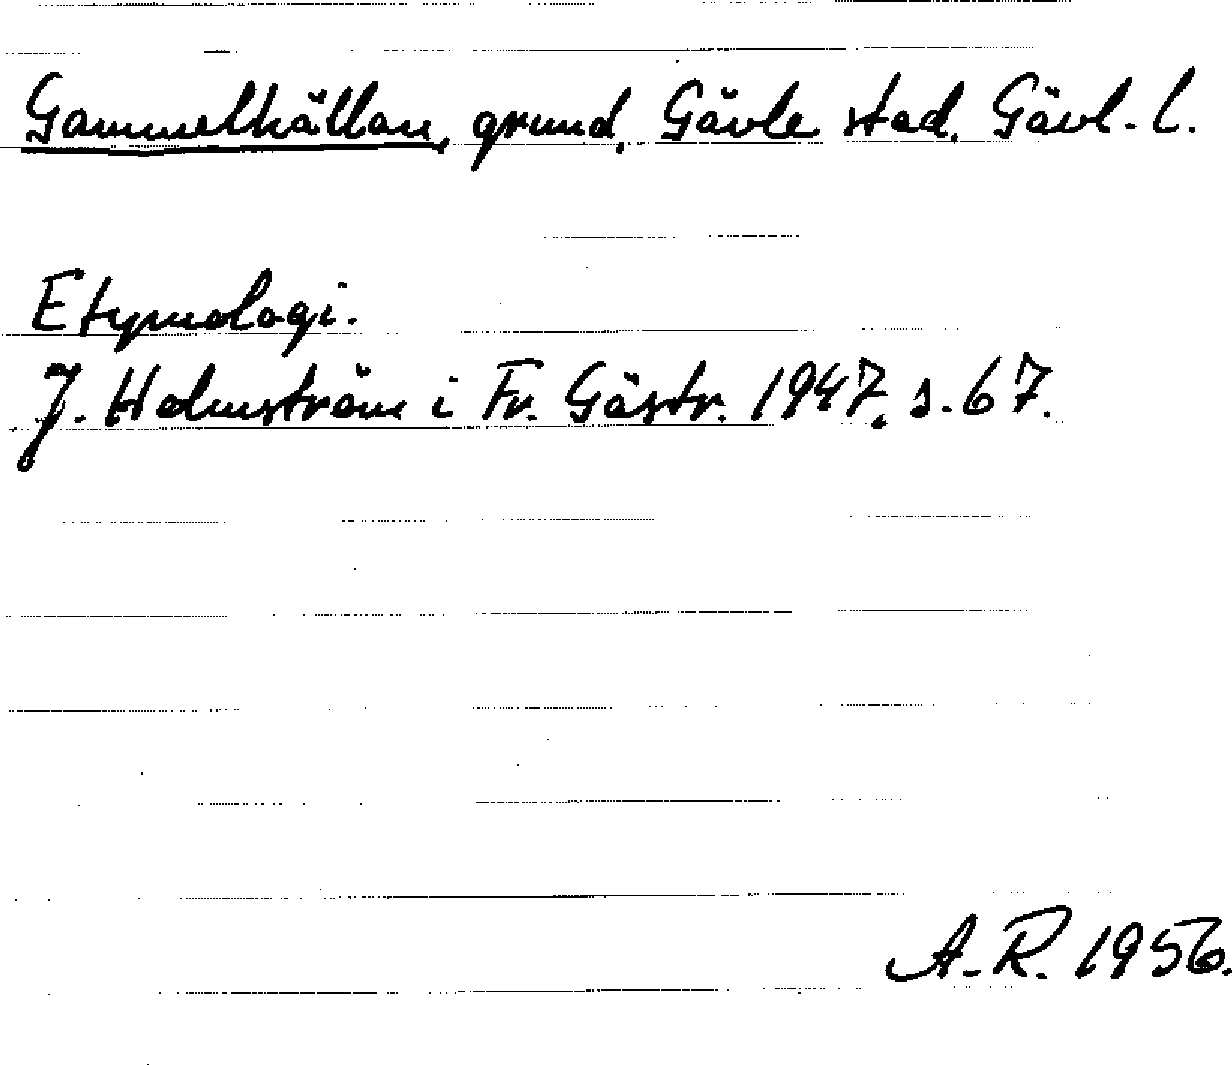 Gammelhällan, grund, Gävle stad, Gävl. l.
Etymologi.
J. Holmström i Fr. Gästr. 1947, s. 67.
A. R. 1956.